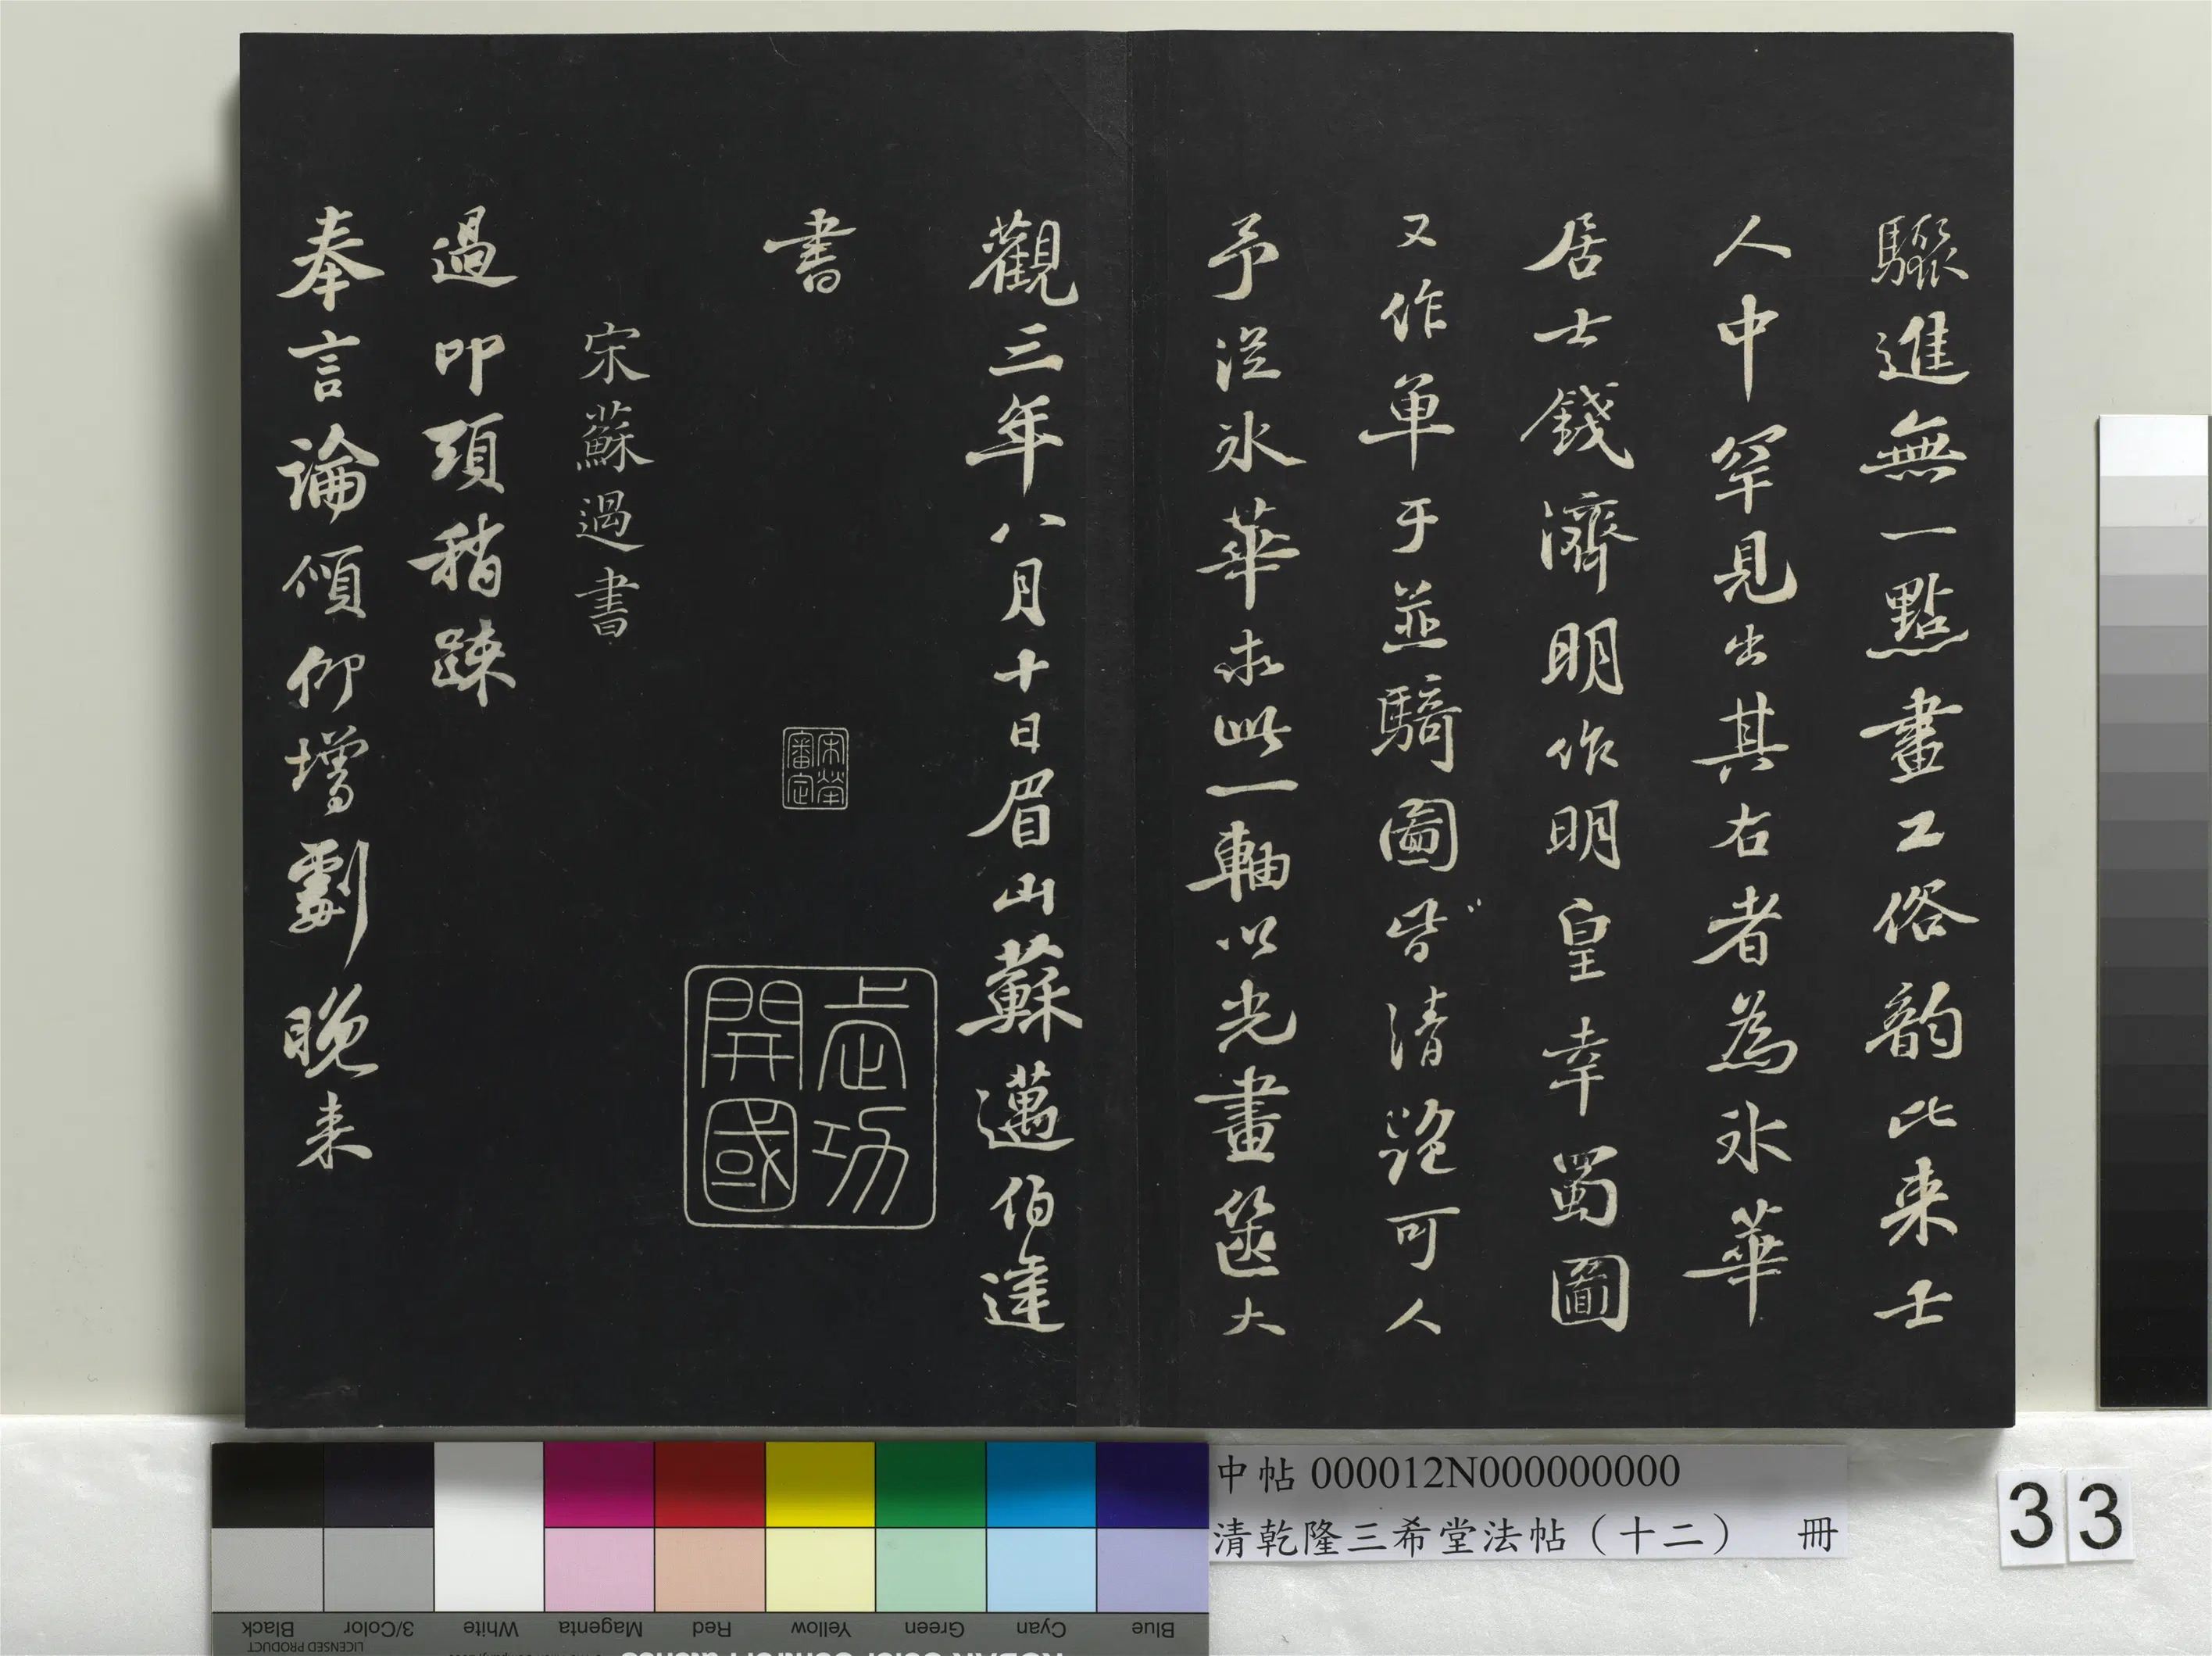 驟進無一點畫工俗韵比来士
人中罕見出其右者為氷華
居士錢濟明作明皇幸蜀圖
又作单于並騎圖皆清絶可人
予從氷華求此一軸以光畫篋大
觀三年八月十日眉山蘇邁伯達
書
宋犖審定
武功開國
宋蘇過書
過叩頭稍踈
奉言論傾仰增劇晚来
中帖 000012N000000000
清乾隆三希堂法帖（十二） 冊
33
Blue
Cyan
Green
Yellow
Red
Magenta
White
3/Color
Black
LICENSED PRODUCT